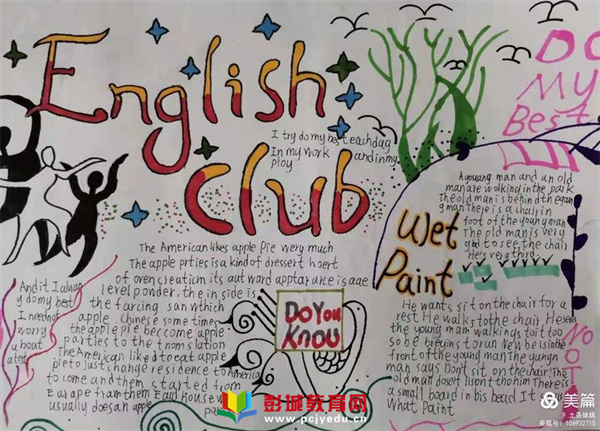 English
club
I try do my best eachday
In my work and in my
ploy
DO
MY
Best
The American likes apple pie very much
The apple prties is a kind of dessert
of oven creation its out ward
level ponder, the in side is
the farcing san which
apple. Charies some time
the apple pie become apple
parties to the tronslation
The American like to eat apple
ple to Just change residence to America
to come and them started from
Europe from them East house w
usually does an apple
And it I alway
y do my best
I neednot
worry
about
Do You
Know
Wet
Paint
A young man and an old
man are walking in the park
The old man is behind the
man There is a chair in
foot of the young man
The old man is very
glad to see the chair
He's very third
He wants sit on the chair for a
rest. He walks to the chair. He sees
the young man walking to it too
so he begins to run Now he is in the
front of the young man. The young
man says Don't sit on the chair. The
old man doesn't lison to him There is
a small board in his bead It s
What Paint
NOT
彭城教育网
www.pcjyedu.cn
美篇
土条妹妹
美篇号：106932715